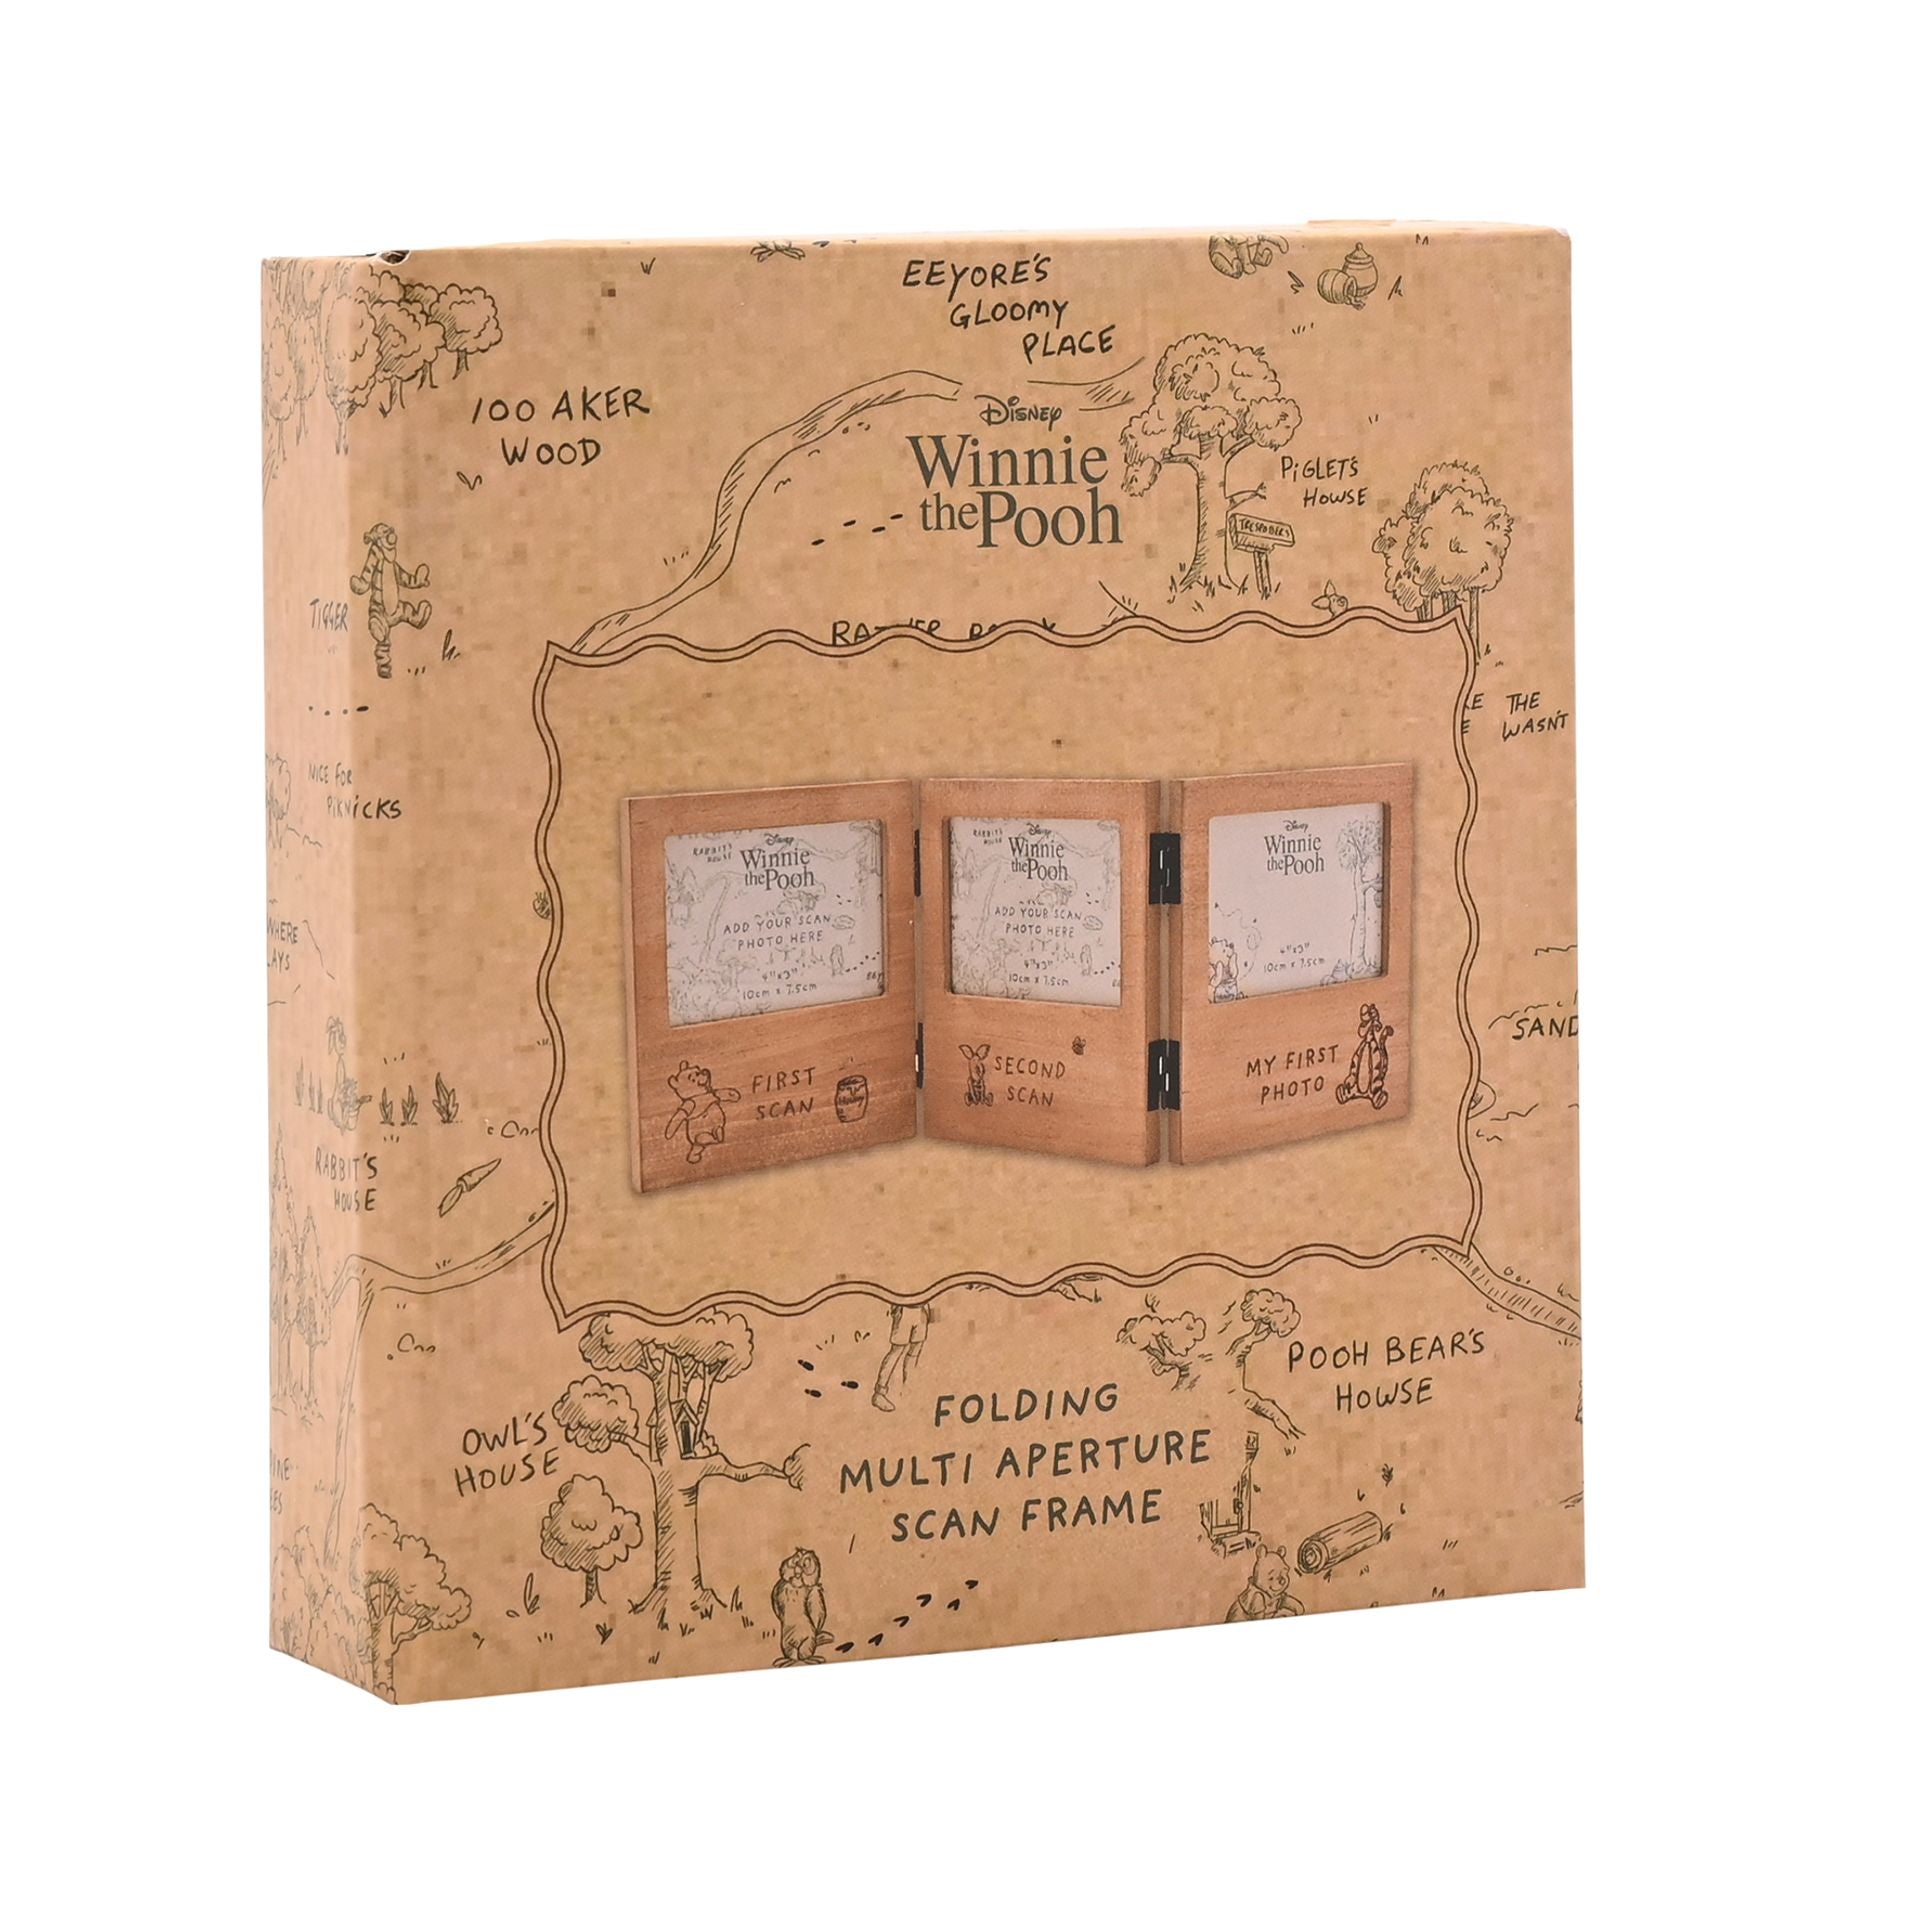 EEYORE'S
GLOOMY
PLACE
100 AKER
WOOD
Disney
Winnie
the Pooh
PiGLET'S
HOWSE
TRESPASSERS
TIGGER
THE
WASN'T
NICE FOR
PIKNiCKS
WHERE
RABBIT'S
HOUSE
Disney
Winnie
the Pooh
ADD YOUR SCAN
PHOTO HERE
4"x3"
10cm x 7.5cm
FIRST
SCAN
Hunny
RABBIT'S
HOUSE
Disney
Winnie
the Pooh
ADD YOUR SCAN
PHOTO HERE
4"x3"
10cm x 7.5cm
SECOND
SCAN
Disney
Winnie
the Pooh
4"x3"
10cm x 7.5cm
MY FIRST
PHOTO
SAND
RABBIT'S
HOUSE
POOH BEAR'S
HOWSE
OWL'S
HOUSE
FOLDING
MULTI APERTURE
SCAN FRAME